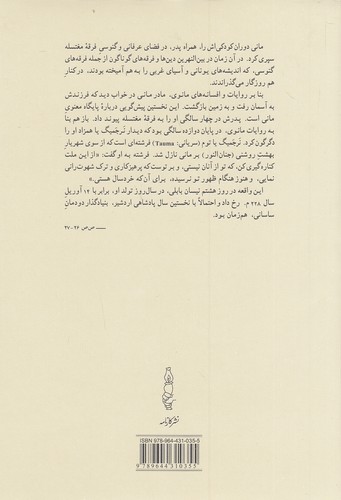 مانی دوران کودکی‌اش را، همراه پدر، در فضای عرفانی و گنوسی فرقهٔ مغتسله
سپری کرد. در آن زمان در بین‌النهرین دین‌ها و فرقه‌های گوناگون از جمله فرقه‌های
گنوسی، که اندیشه‌های یونانی و آسیای غربی را به هم آمیخته بودند، در کنار
هم روزگار می‌گذراندند.
بنا بر روایات و افسانه‌های مانوی، مادر مانی در خواب دید که فرزندش
به آسمان رفت و به زمین بازگشت. این نخستین پیش‌گویی دربارهٔ پایگاه معنوی
مانی است. پدرش در چهار سالگی او را به فرقهٔ مغتسله پیوند داد. باز هم بنا
به روایات مانوی، در پایان دوازده سالگی بود که دیدار نَرجَمیگ یا همزاد او را
دگرگون کرد. نرجمیگ یا توم (سریانی: Tauma) فرشته‌ای است که از سوی شهریار
بهشت روشنی (جنان‌النور) بر مانی نازل شد. فرشته به او گفت: «از این ملت
کناره‌گیری کن که تو از آنان نیستی، و بر توست که پرهیزکاری و ترک شهوت‌رانی
نمایی، و هنوز هنگام ظهور تو نرسیده، برای آن‌که خردسال هستی.»
این واقعه در روز هشتم نیسان بابلی، در سال‌روز تولد او، برابر با ۱۲ آوریل
سال ۲۲۸ م. رخ داد و احتمالاً با نخستین سال پادشاهی اردشیر، بنیادگذار دودمان
ساسانی، هم‌زمان بود.
— صص ۲۶-۲۷
نشر کارنامه
ISBN 978-964-431-035-5
9 789644 310355